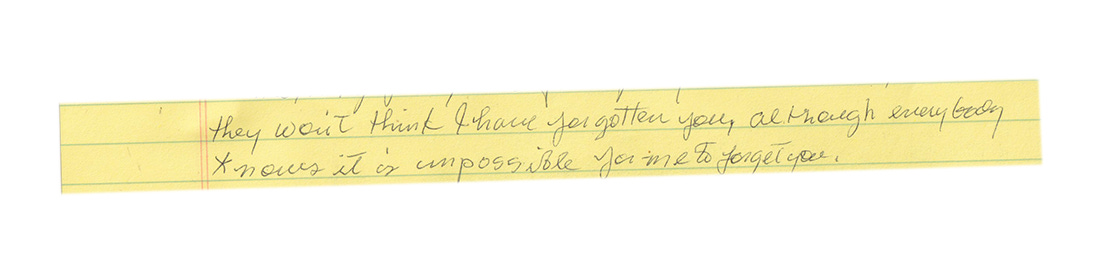 they won't think I have forgotten you, although everybody
knows it is unpossible for me to forget you.